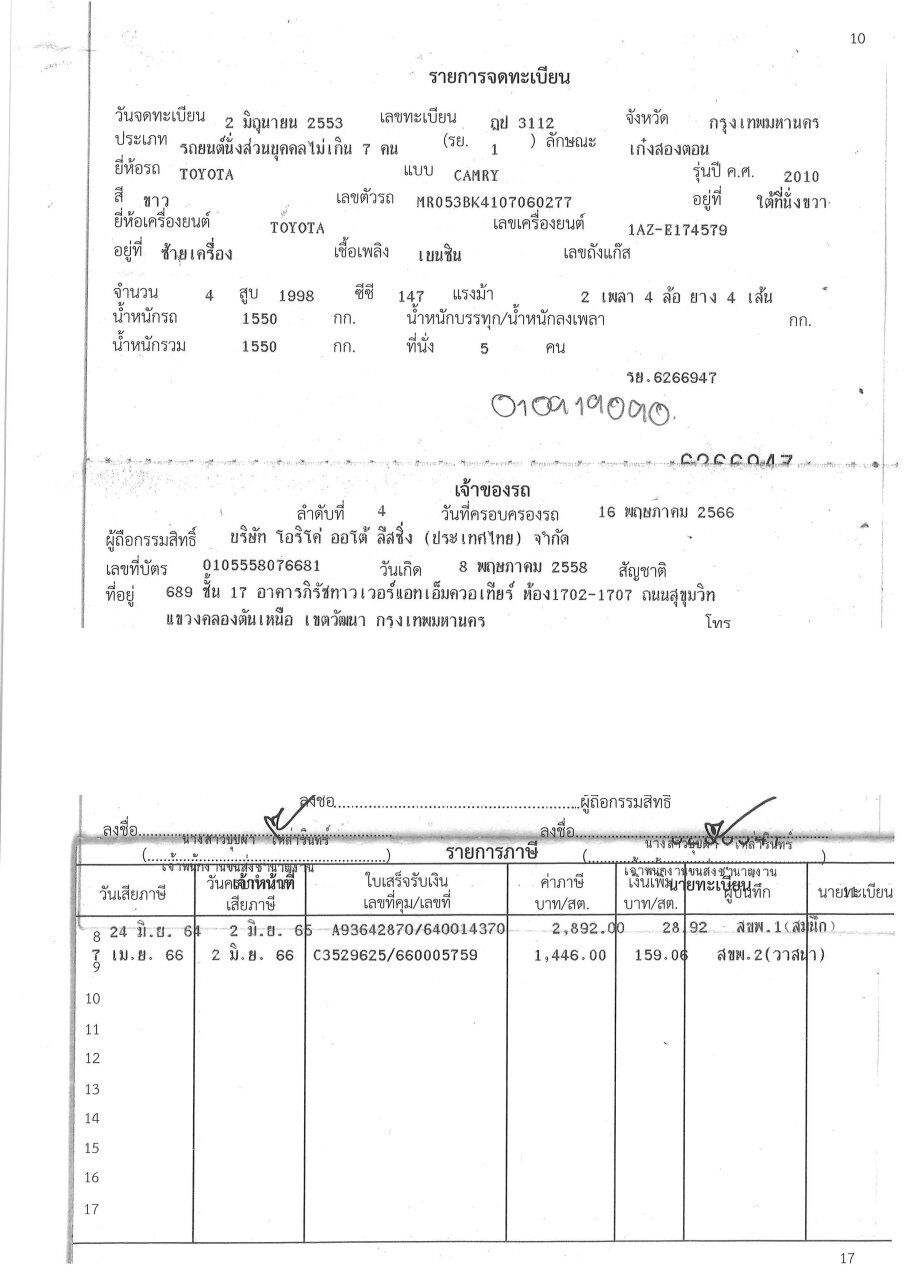 10
รายการจดทะเบียน
วันจดทะเบียน 2 มิถุนายน 2553 เลขทะเบียน ฎป 3112 จังหวัด กรุงเทพมหานคร
ประเภท รถยนต์นั่งส่วนบุคคลไม่เกิน 7 คน (รย. 1 ) ลักษณะ เก๋งสองตอน
ยี่ห้อรถ TOYOTA แบบ CAMRY รุ่นปี ค.ศ. 2010
สี ขาว เลขตัวรถ MR053BK4107060277 อยู่ที่ ใต้ที่นั่งขวา
ยี่ห้อเครื่องยนต์ TOYOTA เลขเครื่องยนต์ 1AZ-E174579
อยู่ที่ ซ้ายเครื่อง เชื้อเพลิง เบนซิน เลขถังแก๊ส
จำนวน 4 สูบ 1998 ซีซี 147 แรงม้า 2 เพลา 4 ล้อ ยาง 4 เส้น
น้ำหนักรถ 1550 กก. น้ำหนักบรรทุก/น้ำหนักลงเพลา กก.
น้ำหนักรวม 1550 กก. ที่นั่ง 5 คน
รย.6266947
6266947
เจ้าของรถ
ลำดับที่ 4 วันที่ครอบครองรถ 16 พฤษภาคม 2566
ผู้ถือกรรมสิทธิ์ บริษัท โอริโค่ ออโต้ ลีสซิ่ง (ประเทศไทย) จำกัด
เลขที่บัตร 0105558076681 วันเกิด 8 พฤษภาคม 2558 สัญชาติ
ที่อยู่ 689 ชั้น 17 อาคารภิรัชทาวเวอร์แอทเอ็มควอเทียร์ ห้อง1702-1707 ถนนสุขุมวิท
แขวงคลองตันเหนือ เขตวัฒนา กรุงเทพมหานคร โทร
ลงชื่อ..............................ผู้ถือกรรมสิทธิ์
ลงชื่อ.............................. ลงชื่อ..............................
(..............................) รายการภาษี (..............................)
วันเสียภาษี วันครบกำหนดเสียภาษี ใบเสร็จรับเงิน เลขที่คุม/เลขที่ ค่าภาษี บาท/สต. เงินเพิ่ม บาท/สต. ผู้บันทึก นายทะเบียน
8 24 มิ.ย. 64 2 มิ.ย. 65 A93642870/640014370 2,892.00 28.92 สขพ.1(สมนึก)
9 7 เม.ย. 66 2 มิ.ย. 66 C3529625/660005759 1,446.00 159.06 สขพ.2(วาสนา)
10
11
12
13
14
15
16
17
17